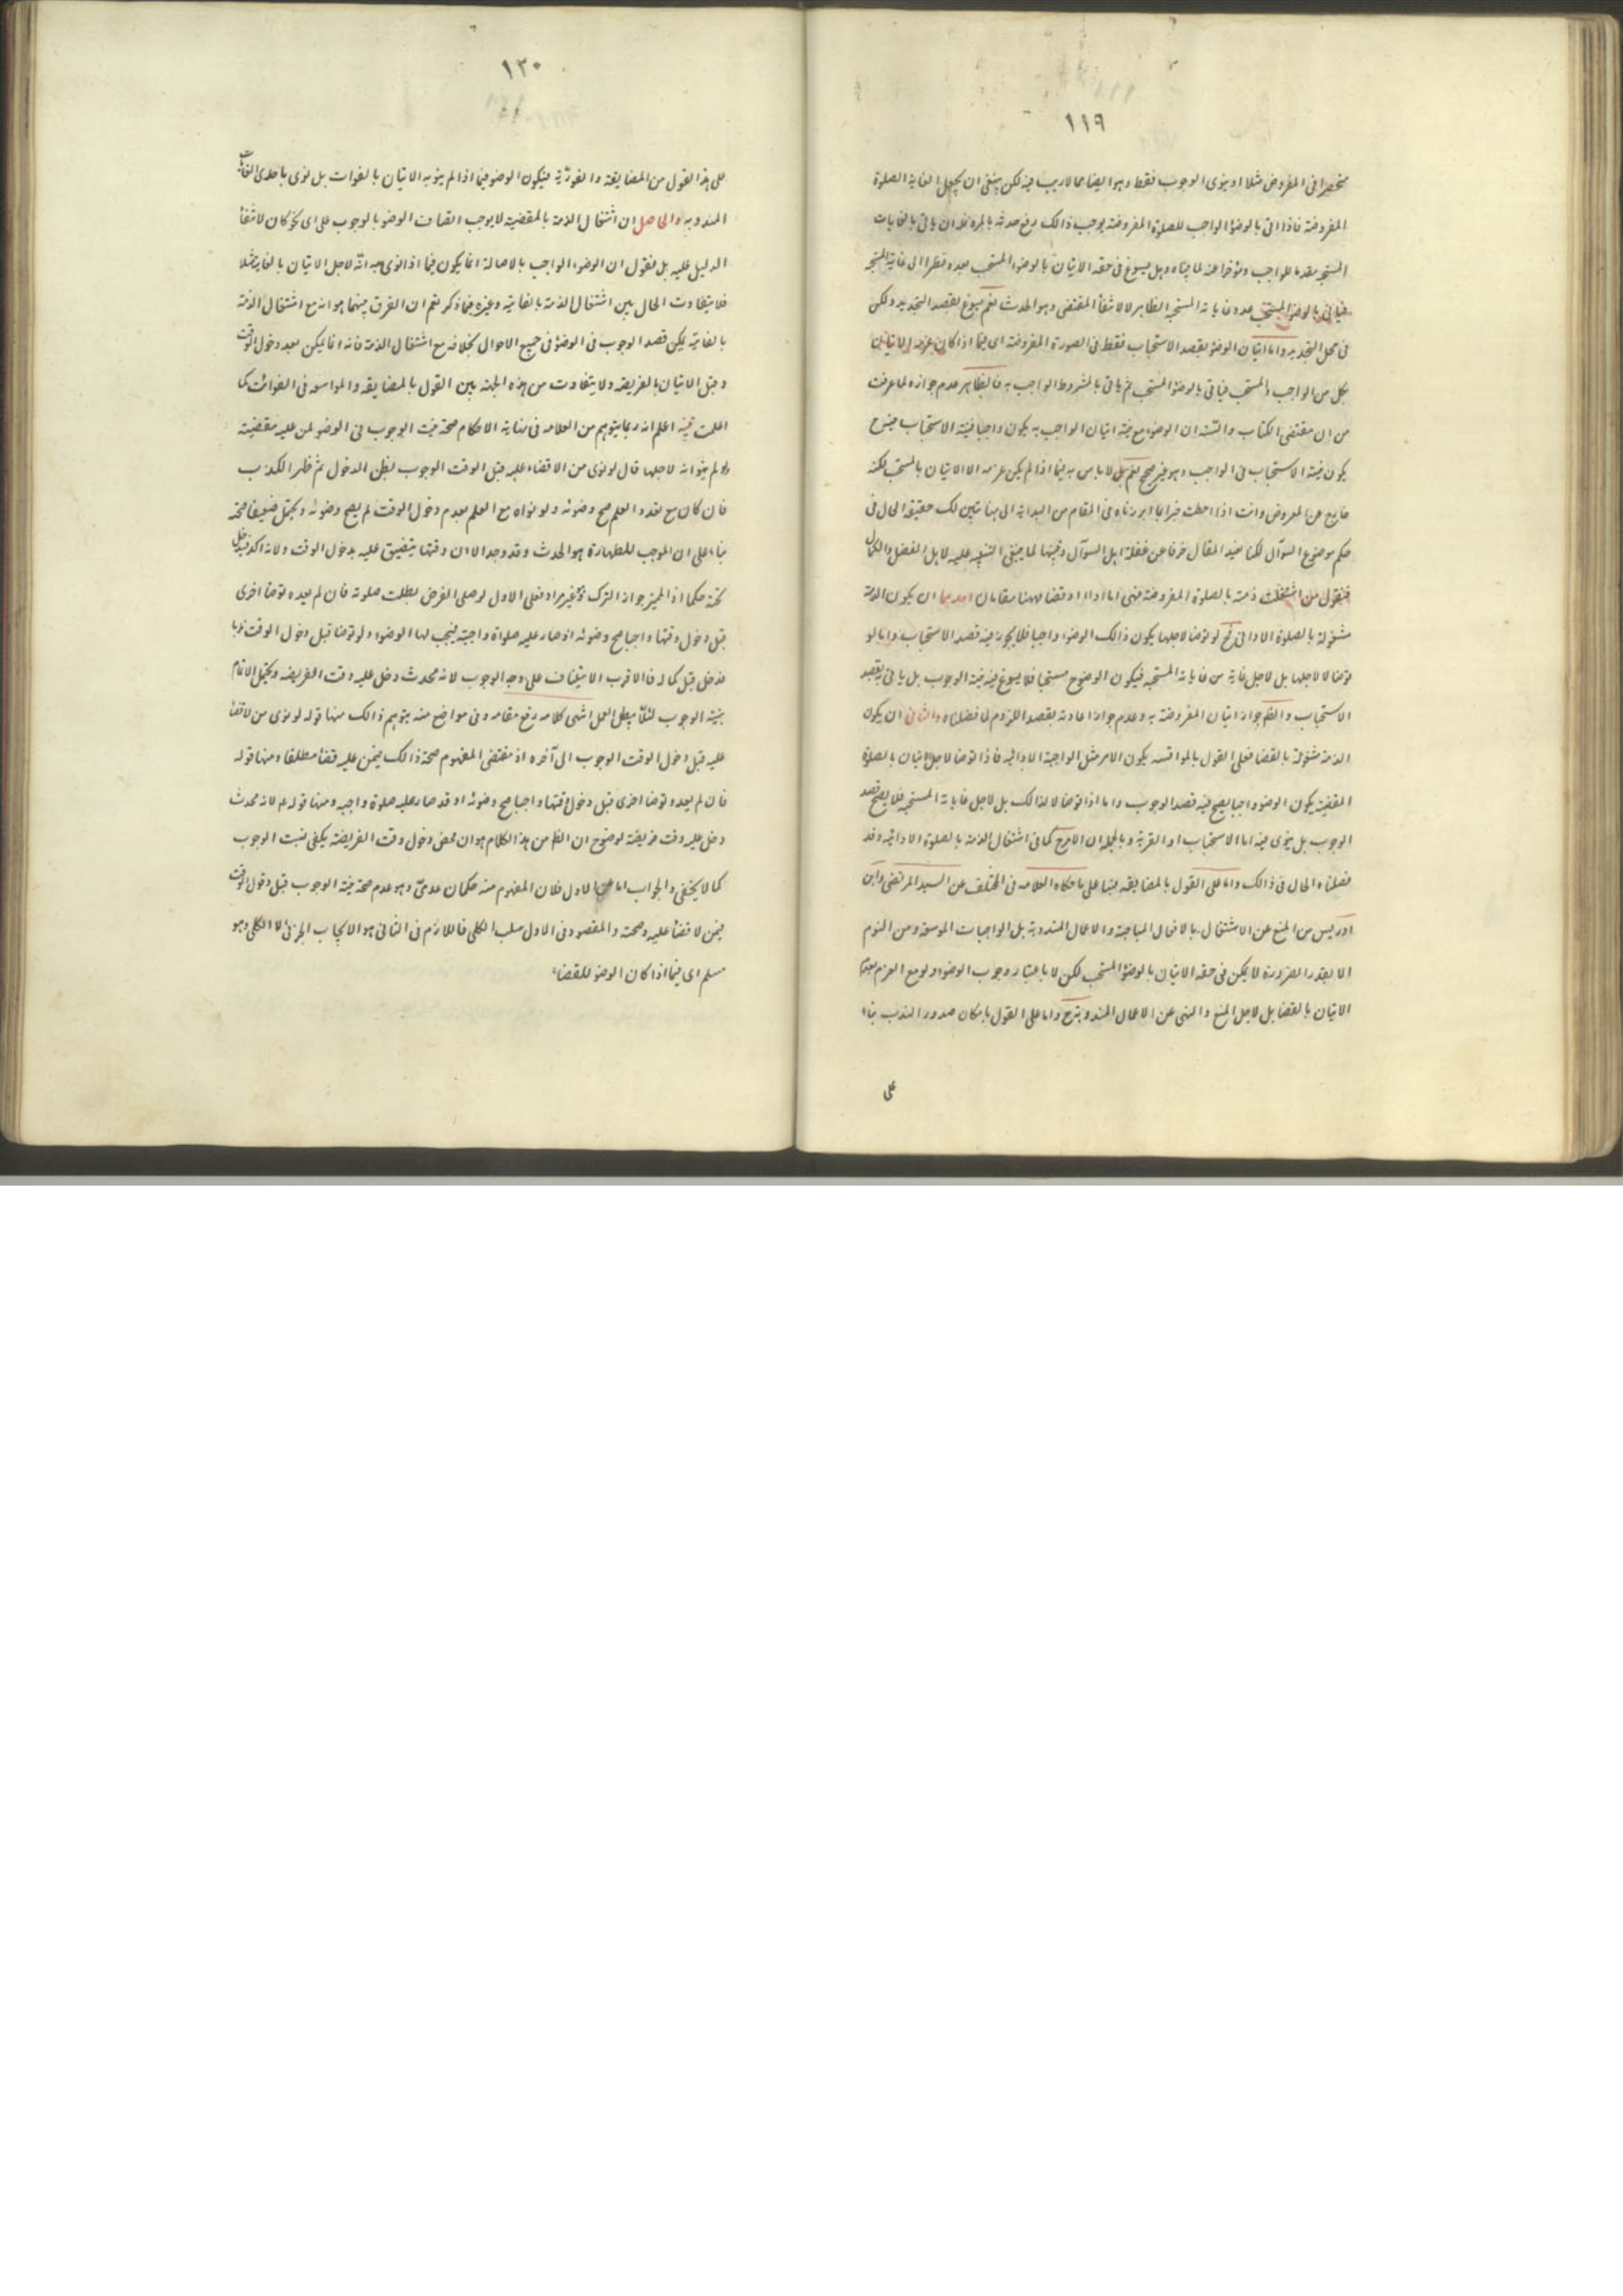 ١١٩
منحصرا فى المفروض مثلا او ينوى الوجوب فقط وهو ايضا مما لاريب فيه لكن ينبغى ان يجعل الغاية الصلوة
المفروضة فاذا اتى بالوضوء الواجب للصلوة المفروضة يوجب ذالك رفع حدثه بالمرة فله ان ياتى بالغايات
المستحبة مقدما للواجب ومؤخرا عنه لما بيناه وهل يسوغ فى حقه الاتيان بالوضوء المستحب بعده نظرا الى غاية المستحبة
فياتى بالوضوء المستحب بعده وغاياته المستحبة الظاهر لا لانتفاء المقتضى وهو الحدث نعم يسوغ بقصد التجديد ولكن
فى محل التجديد واما اتيان الوضوء بقصد الاستحباب فقط فى الصورة المفروضة اى فيما اذا كان عزمه الاتيان
بكل من الواجب والمستحب فياتى بالوضوء المستحب ثم ياتى بالمشروط الواجب به فالظاهر عدم جوازه لما عرفت
من ان مقتضى الكتاب والسنة ان الوضوء مع نية اتيان الواجب به يكون واجبا فنية الاستحباب حينئذ
يكون نية الاستحباب فى الواجب وهو غير صحيح نعم لاباس به فيما اذا لم يكن عزمه الا الاتيان بالمستحب لكنه
خارج عن المعروض وانت اذا احطت خبرا بما ابرزناه فى المقام من البداية الى هنا تبين لك حقيقة الحال فى
حكم موضوع السؤال لكنا نعيد المقال خوفا عن غفلة اهل السؤال وتنبيها لما ينبغى التنبيه عليه لاهل الفضل والكمال
فنقول من اشتغلت ذمته بالصلوة المفروضة فهى اما اداء او قضاء فههنا مقامان احدهما ان يكون الذمة
مشغولة بالصلوة الادائى فح لو توضا لاجلها يكون ذالك الوضوء واجبا فلا يجوز فيه قصد الاستحباب واما لو
توضا لا لاجلها بل لاجل غاية من غاياته المستحبة فيكون الوضوء ح مستحبا فلا يسوغ فيه نية الوجوب بل ياتى به بقصد
الاستحباب والظ جواز اتيان المفروضة به وعدم جواز اعادته بقصد اللزوم لما فصلناه والثانى ان يكون
الذمة مشغولة بالقضا فعلى القول بالمواسعة يكون الامر مثل الواجبة الادائية فاذا توضا لاجل اتيان بالصلوة
المقضية يكون الوضوء واجبا يصح فيه قصد الوجوب واما اذا توضا لا لذالك بل لاجل غاياته المستحبة فلا يصح قصد
الوجوب بل ينوى فيه اما الاستحباب او القربة وبالجملة ان الامر ح كما فى اشتغال الذمة بالصلوة الادائية وقد
فصلناه الحال فى ذالك واما على القول بالمضايقة فبنا على ما حكاه العلامه فى المختلف عن السيد المرتضى وابن
ادريس من المنع عن الاشتغال بالافعال المباحة والاعمال المندوبة بل الواجبات الموسعة ومن النوم
الا بقدر الضرورة لا يمكن فى حقه الاتيان بالوضوء المستحب لكن لا باعتبار وجوب الوضوء ولو مع العزم بعدم
الاتيان بالقضا بل لاجل المنع والنهى عن الاعمال المندوبة ح واما على القول بامكان صدور الندب بناء
على
١٢٠
على هذا القول من المضايقة والفورية فيكون الوضوء فيما اذا لم ينو به الاتيان بالفوات بل نوى باحدى الغايات
المندوبه والحاصل ان اشتغال الذمة بالمقضية لايوجب اتصاف الوضوء بالوجوب على اى نحو كان لانتفاء
الدليل عليه بل نقول ان الوضوء الواجب بالاصالة انما يكون فيما اذا نوى به انه لاجل الاتيان بالغاية مثلا
فلا يتفاوت الحال بين اشتغال الذمة بالغاية وغيره فيما ذكر نعم ان الفرق بينهما هو انه مع اشتغال الذمة
بالغاية يمكن قصد الوجوب فى الوضوء فى جميع الاحوال بخلافه مع اشتغال الذمة فانه انما يمكن بعد دخول الوقت
وقبل الاتيان بالفريضه ولا يتفاوت من هذه الجهة بين القول بالمضايقه والمواسعه فى الفوائت كما
اعلمت تنبيه اعلم انه ربما يتوهم من العلامه فى نهاية الاحكام صحة نية الوجوب فى الوضوء لمن عليه مقضيته
ولو لم ينو انه لاجلها قال لو نوى من لا قضاء عليه قبل الوقت الوجوب بظن الدخول ثم ظهر الكذب
فان كان مع تعذر العلم صح وضوئه ولو نواه مع العلم بعدم دخول الوقت لم يصح وضوئه ويحتمل ضعيفا صحته
بناء على ان الموجب للطهارة هو الحدث وقد وجد الا ان وقتها يتضيق عليه بدخول الوقت ولانه اكد
حكما اذ المميز جواز الترك وغير مراد فعلى الاول لو صلى الفرض بطلت صلوته فان لم يعده توضأ اخرى
قبل دخول وقتها واجبا صح وضوئه اذ صار عليه صلواة واجبة فيجب لها الوضوء ولو توضا قبل دخول الوقت ندبا
فدخل قبل كماله فالاقرب الاستيناف على وجه الوجوب لانه محدث دخل عليه وقت الفريضه ويحتمل الاتمام
بنية الوجوب لئلا يبطل العمل انتهى كلامه رفع مقامه وفى مواضع منه يتوهم ذالك منها قوله لو نوى من لا قضا
عليه قبل دخول الوقت الوجوب الى آخره اذ مقتضى المفهوم صحة ذالك فيمن عليه قضا مطلقا ومنها قوله
فان لم يعد وتوضا اخرى قبل دخول وقتها واجبا صح وضوئه اذ قد صار عليه صلوة واجبه ومنها قوله لانه محدث
دخل عليه وقت فريضة لوضوح ان الظ من هذا الكلام هو ان محض دخول وقت الفريضة يكفى لنيت الوجوب
كما لا يخفى والجواب اما عن الاول فلان المفهوم منه حكمان عدمى وهو عدم صحة نية الوجوب قبل دخول الوقت
فيمن لا قضا عليه وصحته والمقصود فى الاول سلب الكلى فاللازم فى الثانى هو الايجاب الجزئى لا الكلى وهو
مسلم اى فيما اذا كان الوضوء للقضاء